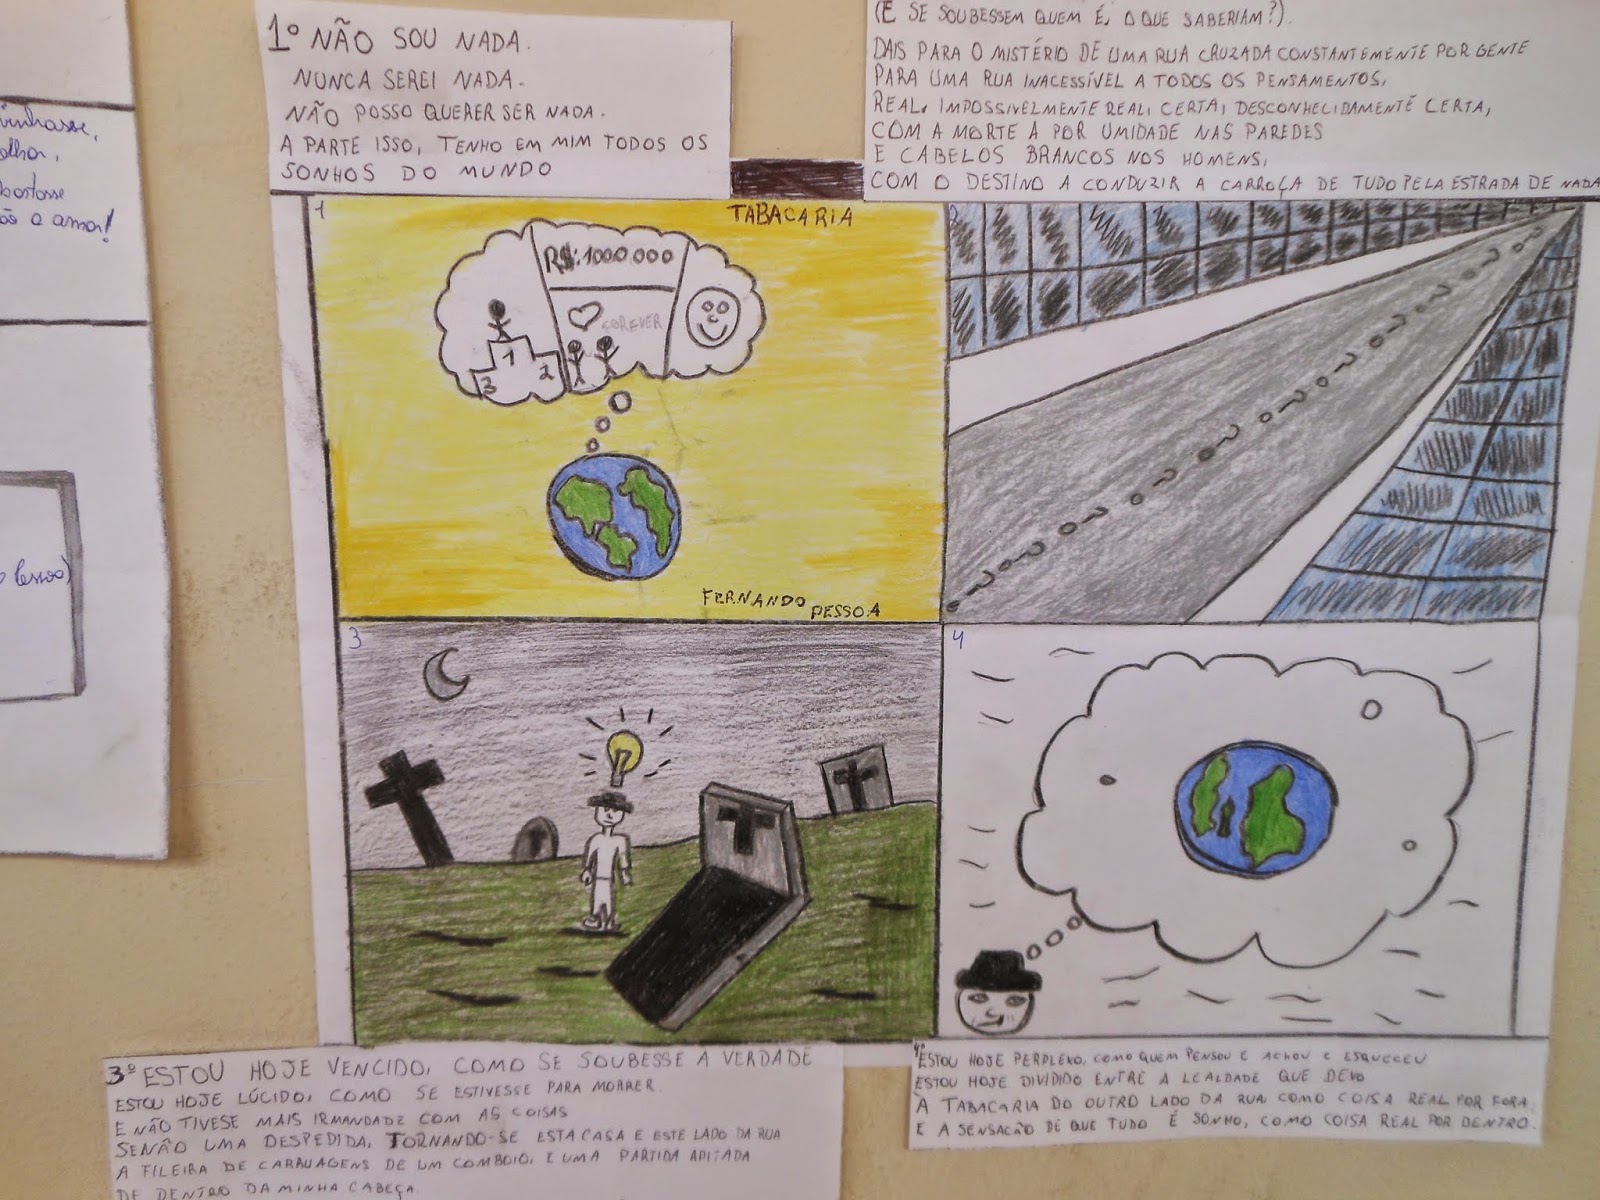 vinhasse,
olhar,
bastasse
ão a amar!
Pessoa)
1º NÃO SOU NADA.
NUNCA SEREI NADA.
NÃO POSSO QUERER SER NADA.
A PARTE ISSO, TENHO EM MIM TODOS OS
SONHOS DO MUNDO
(E SE SOUBESSEM QUEM É, O QUE SABERIAM?).
DAIS PARA O MISTÉRIO DE UMA RUA CRUZADA CONSTANTEMENTE POR GENTE
PARA UMA RUA INACESSÍVEL A TODOS OS PENSAMENTOS,
REAL, IMPOSSIVELMENTE REAL, CERTA, DESCONHECIDAMENTE CERTA,
COM A MORTE A POR UMIDADE NAS PAREDES
E CABELOS BRANCOS NOS HOMENS,
COM O DESTINO A CONDUZIR A CARROÇA DE TUDO PELA ESTRADA DE NADA
1
TABACARIA
R$:1000.000
FOREVER
1
3 2
FERNANDO
PESSOA
2
3
4
3º ESTOU HOJE VENCIDO, COMO SE SOUBESSE A VERDADE
ESTOU HOJE LÚCIDO, COMO SE ESTIVESSE PARA MORRER.
E NÃO TIVESE MAIS IRMANDADE COM AS COISAS
SENÃO UMA DESPEDIDA, TORNANDO-SE ESTA CASA E ESTE LADO DA RUA
A FILEIRA DE CARRUAGENS DE UM COMBOIO, E UMA PARTIDA APITADA
DE DENTRO DA MINHA CABEÇA.
4º ESTOU HOJE PERPLEXO, COMO QUEM PENSOU E ACHOU E ESQUECEU
ESTOU HOJE DIVIDIDO ENTRE A LEALDADE QUE DEVO
À TABACARIA DO OUTRO LADO DA RUA COMO COISA REAL POR FORA.
E A SENSACÃO DE QUE TUDO É SONHO, COMO COISA REAL POR DENTRO.